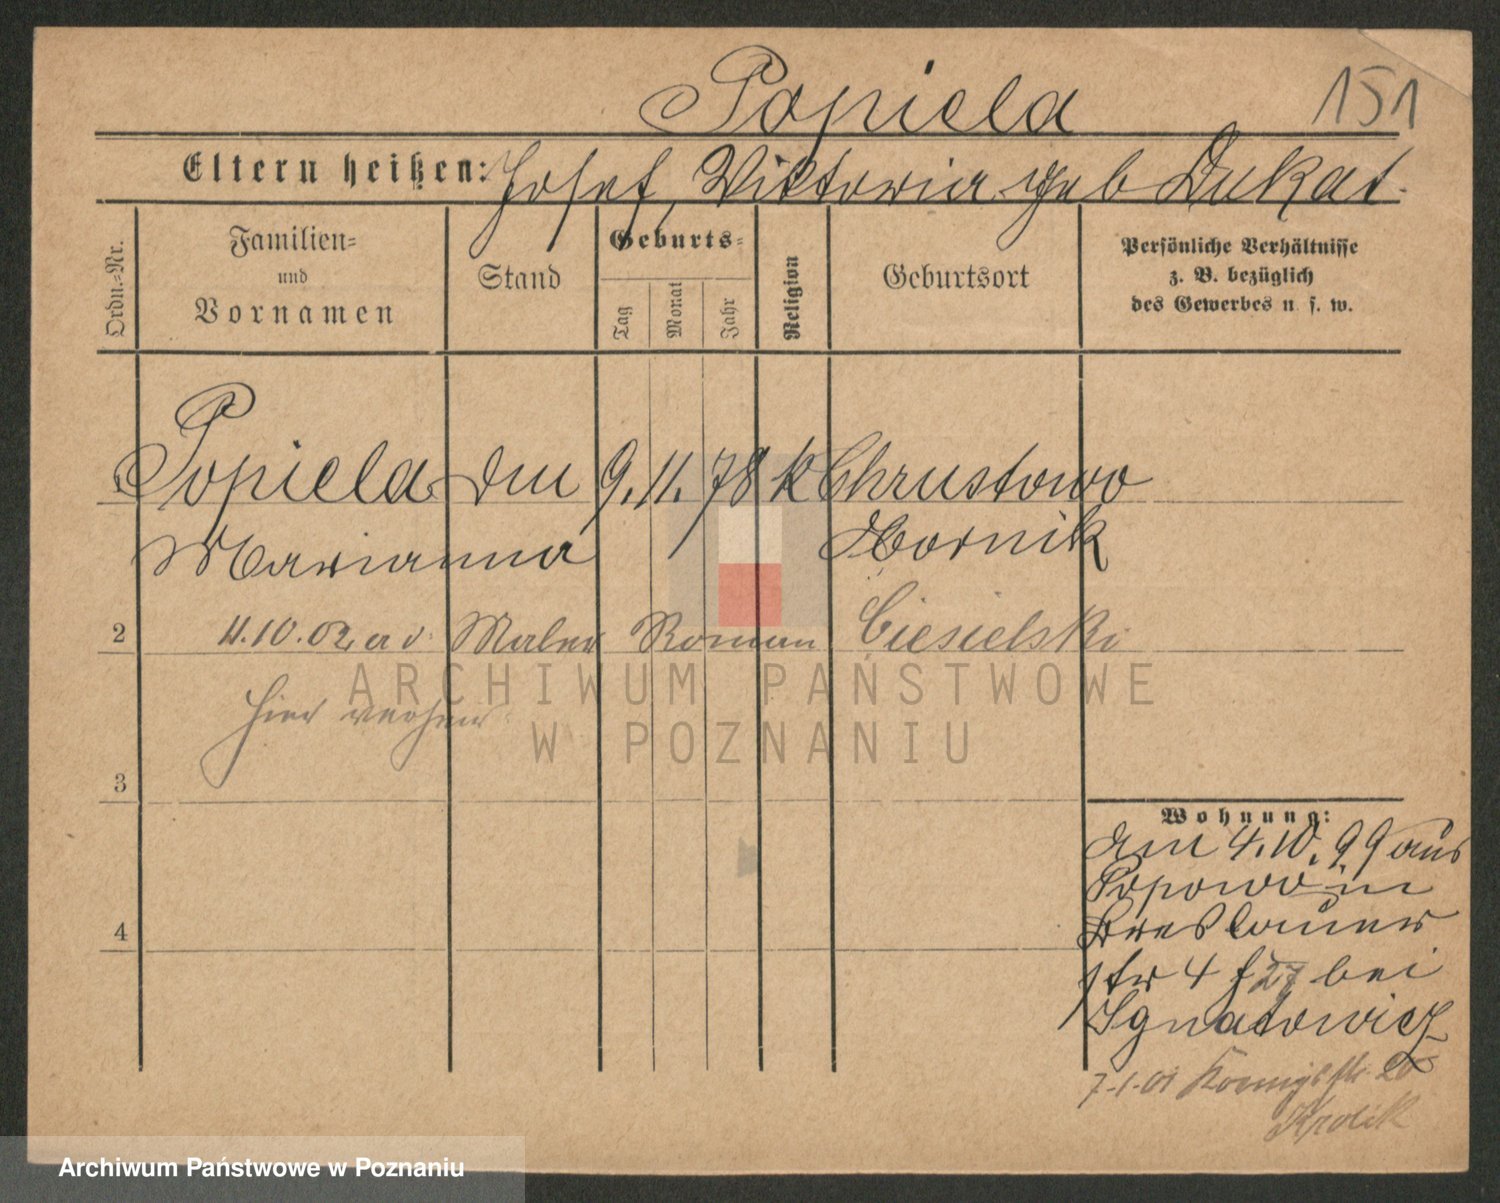 Popiela
151
Eltern heißen: Josef, Viktoria geb Dukat.
Ordn.-Nr.
Familien-
und
Vornamen
Stand
Geburts-
Tag
Monat
Jahr
Religion
Geburtsort
Persönliche Verhältnisse
z. B. bezüglich
des Gewerbes u. s. w.
Popiela 9. 11. 78 k Chrustowo
Marianna Obornik
2 11.10.02 a d. Maler Roman Ciesielski
hier verh
3
4
Wohnung:
am 4.10.99 aus
Popowo in
Breslauer
str 4 bei
Ignatowicz
7.1.01 Königstr. 20
Krolik
ARCHIWUM PAŃSTWOWE
W POZNANIU
Archiwum Państwowe w Poznaniu